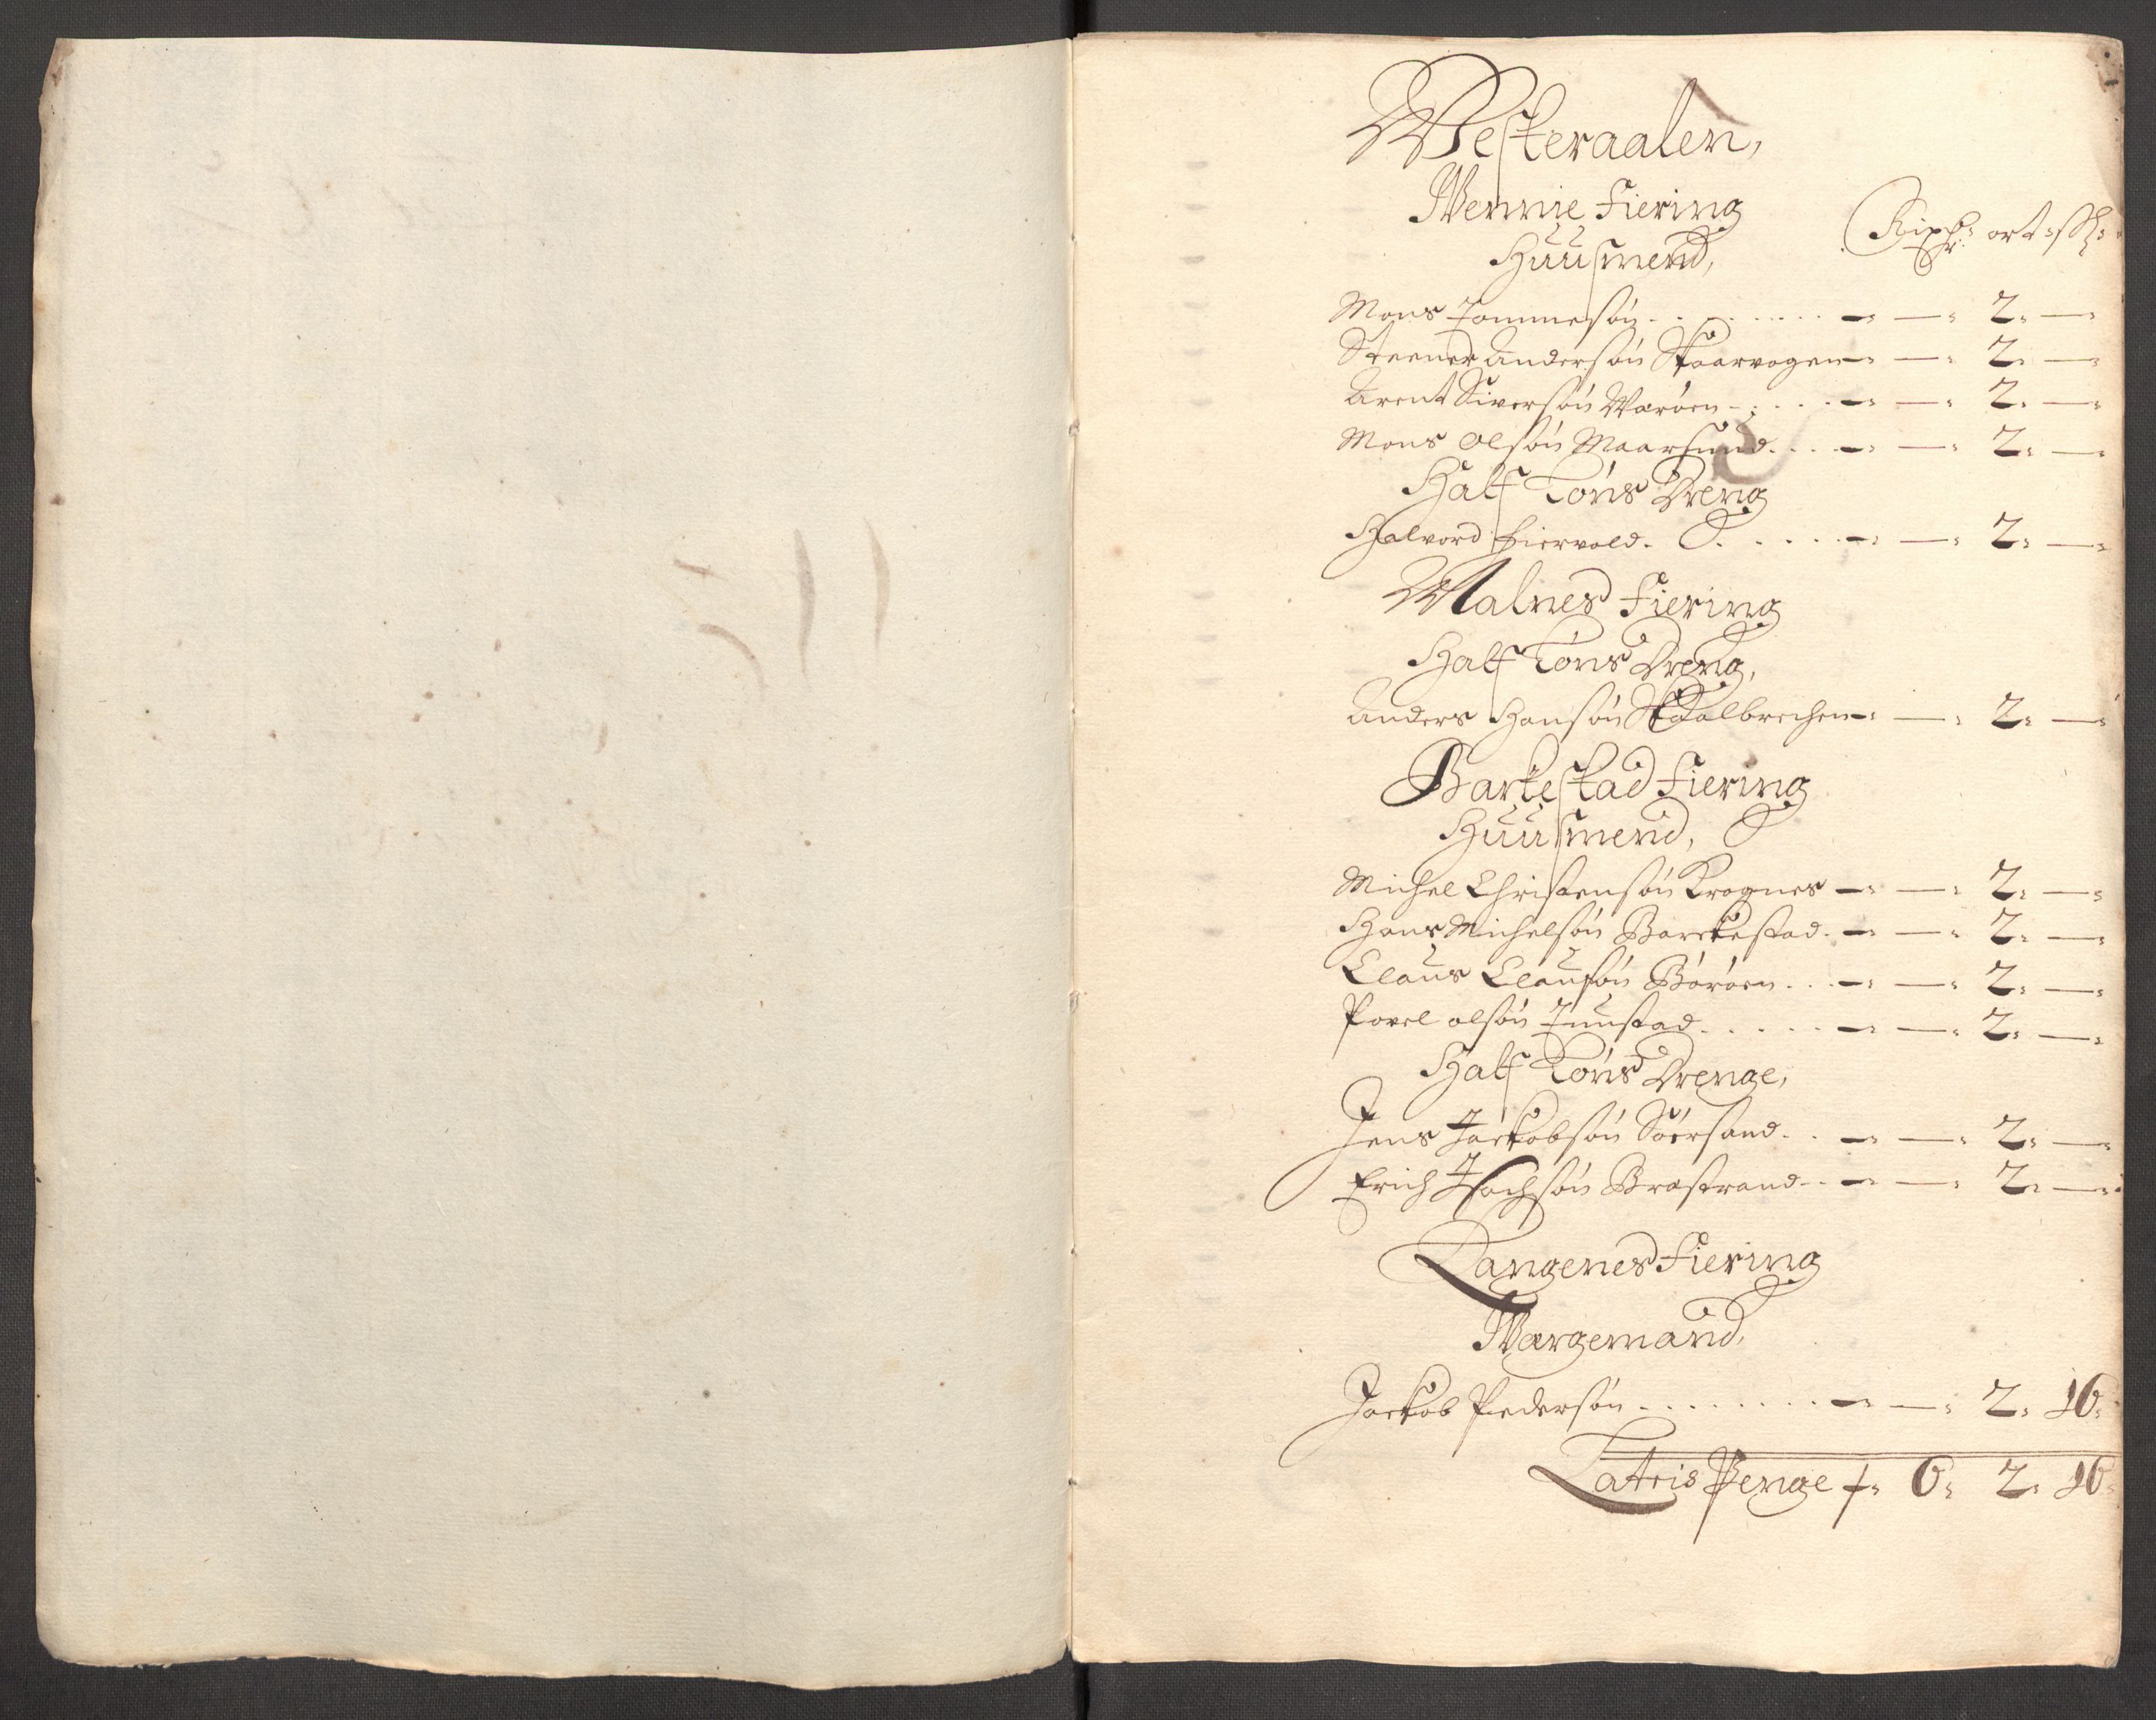 Westeraalen,
Wennie Fiering
Huusmend,
Rixdr: ort: sh:
Mons Tommesøn . . . . . . . . — — 2: —
Steener Andersøn Skaarvogen — — 2: —
Arent Siversøn Warøen . . . . — — 2: —
Mons Olsøn Maarsund . . . — — 2: —
Half Løns Dreng
Halvord Eiervold . . . . . . — — 2: —
Malnes Fiering
Half Løns Dreng,
Anders Hansøn Skaalbrechen — — 2: —
Barkestad Fiering
Huusmend,
Michel Christensøn Krognes — — 2: —
Hans Michelsøn Barckestad . — — 2: —
Claus Clausøn Børøen . . . — — 2: —
Povel olsøn Tunstad . . . . . — — 2: —
Half Løns Drenge,
Jens Jackobsøn Søersand . . — — 2: —
Erich Isachsøn Brastrand . . — — 2: —
Langenes Fiering
Wærgemand,
Jackob Pedersøn . . . . . . . . — — 2: 16:
Lateris Penge f: 6: 2: 16: